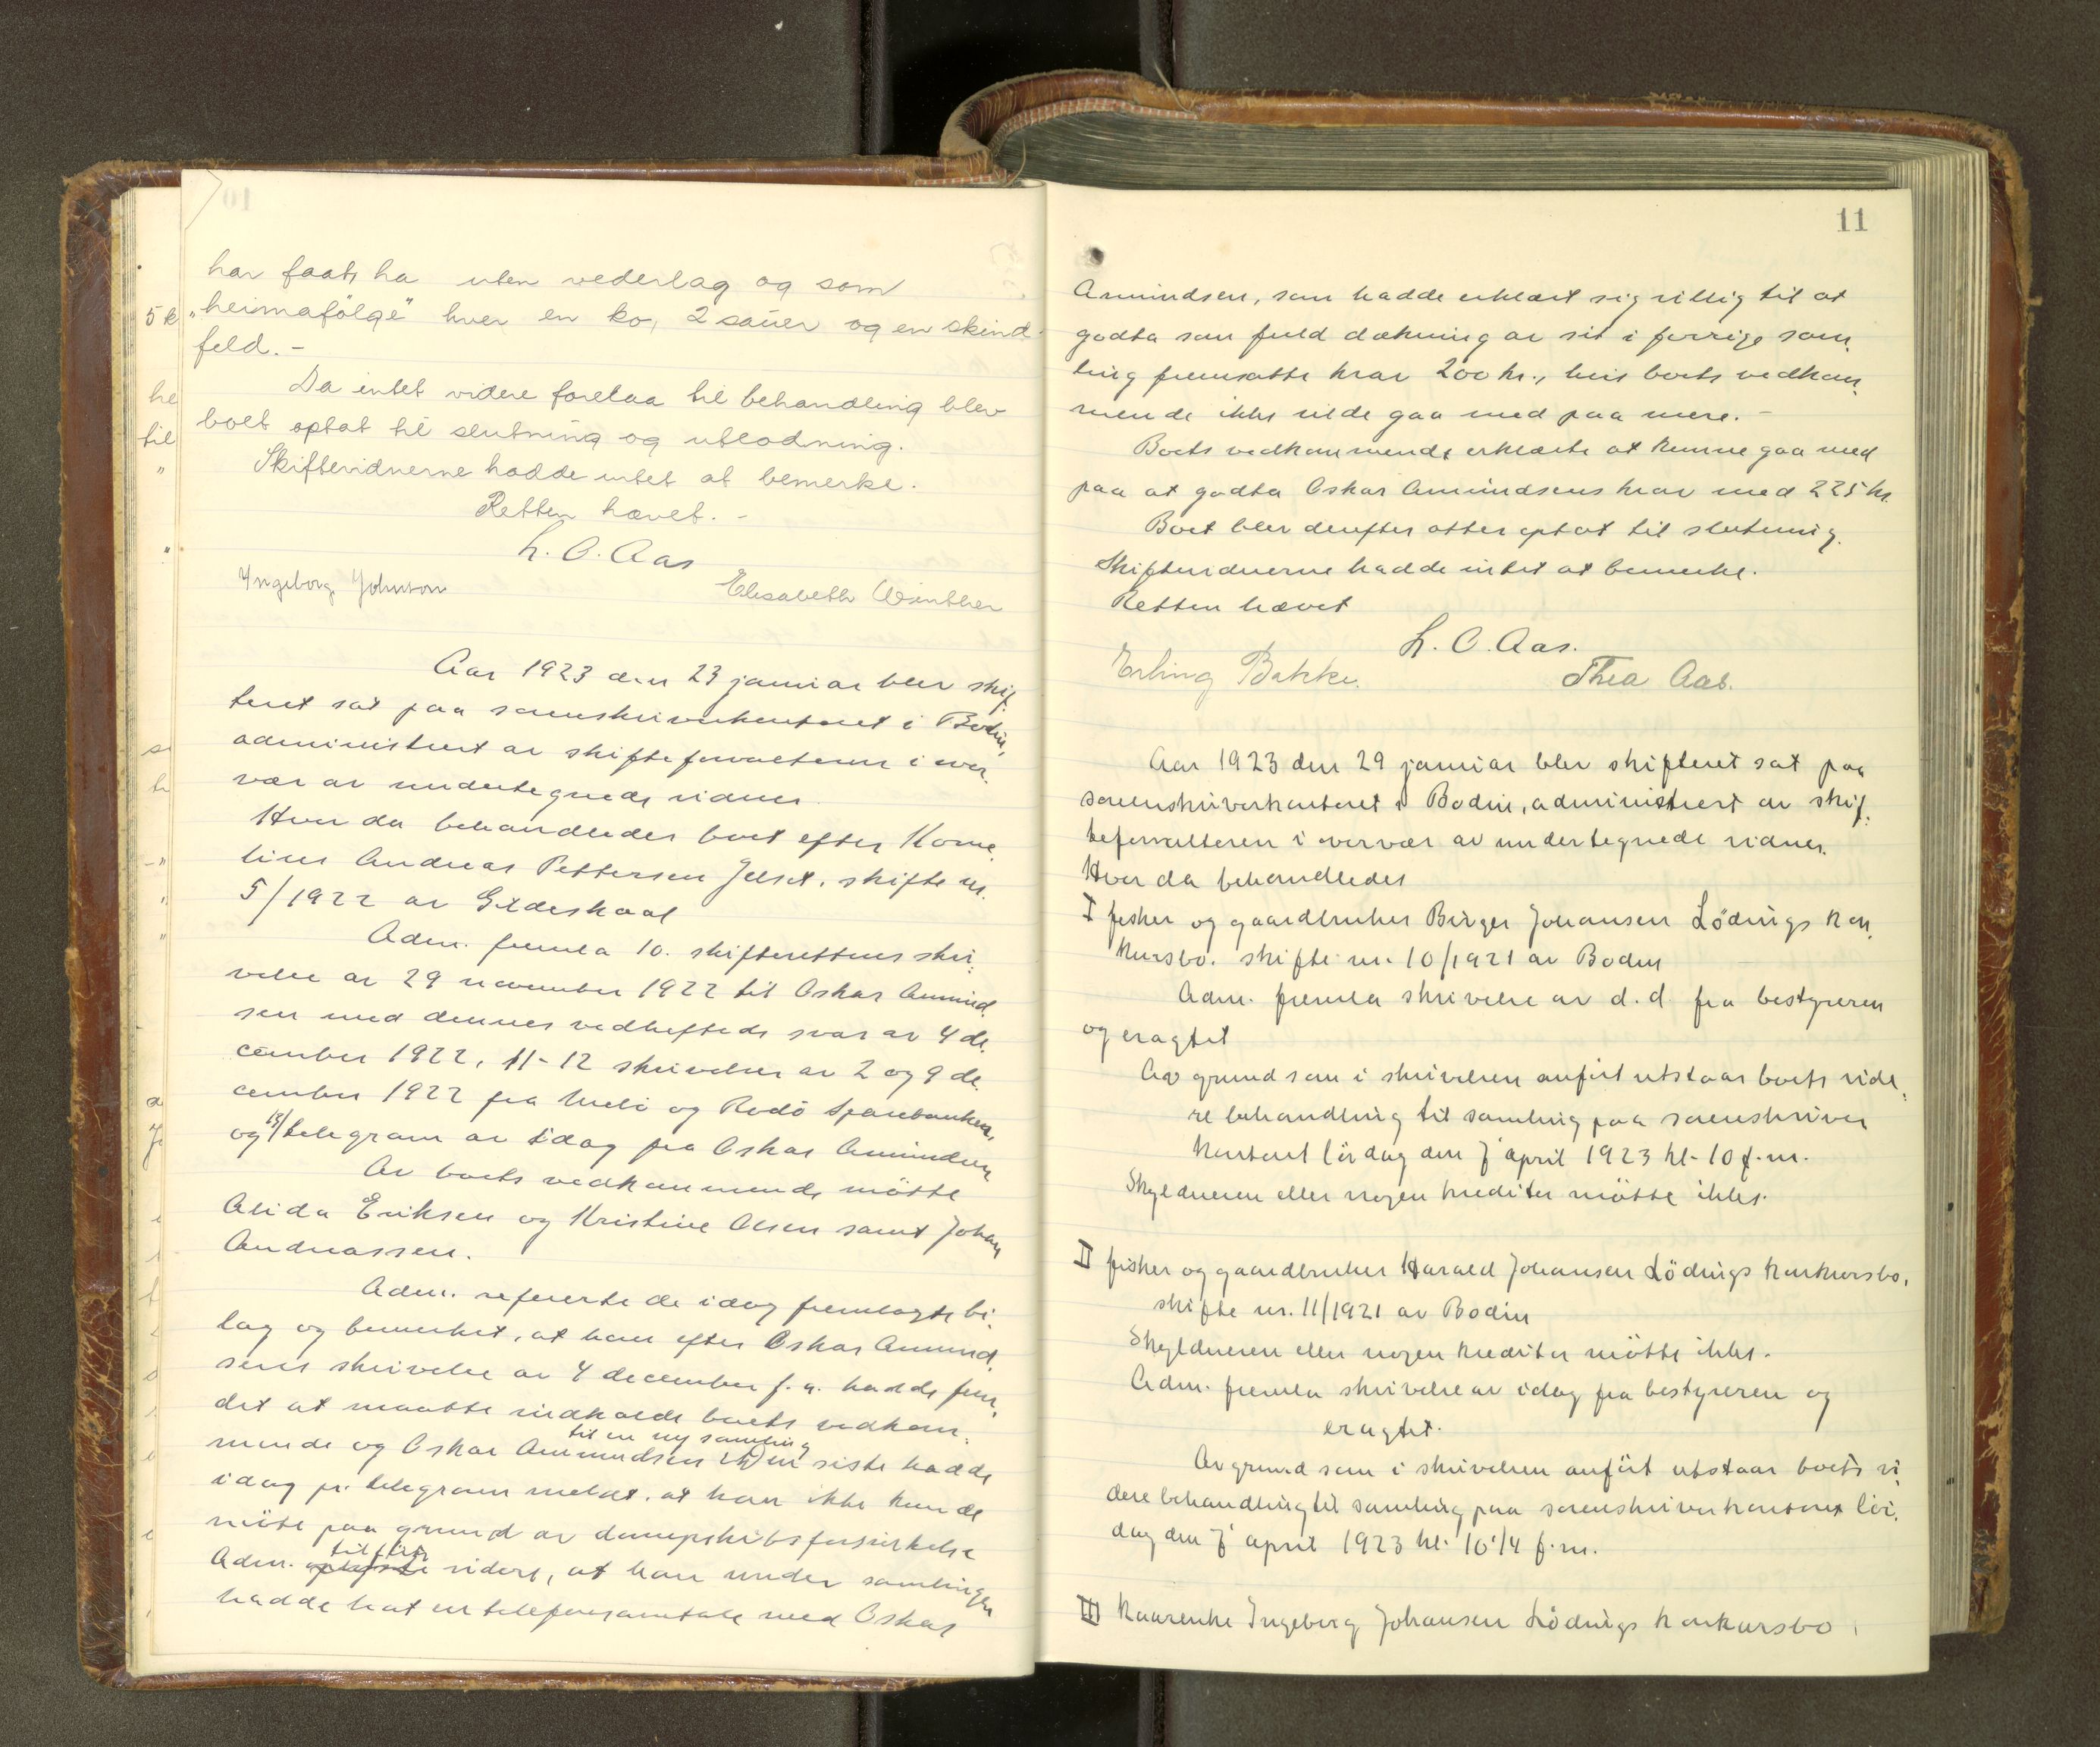 har faat ha uten vederlag og som
„heimafölge" hver en ko, 2 sauer og en skind-
feld. -
Da intet videre forelaa til behandling blev
boet optat til slutning og utlodning.
Skiftevidnerne hadde intet at bemerke.
Retten hævet. -
L. O. Aas
Ingeborg Johnson Elisabeth Winther
Aar 1923 den 23 januar blev skif-
teret sat paa sorenskriverkontoret i Bodin,
administrert av skifteforvalteren i over-
vær av undertegnede vidner.
Hvor da behandledes boet efter Korne-
lius Andreas Pettersen Jelset, skifte nr.
5/1922 av Gildeskaal
Adm. fremla 10. skifterettens skri-
velse av 29 november 1922 til Oskar Amund-
sen med dennes vedheftede svar av 4 de-
cember 1922, 11-12 skrivelser av 2 og 9 de-
cember 1922 fra Melö og Rödö Sparebanker,
og 13/ telegram av idag fra Oskar Amundsen
Av boets vedkommende mötte
Alida Eriksen og Kristine Olsen samt Johan
Andreassen.
Adm. refererte de idag fremlagte bi-
lag og bemerket, at han efter Oskar Amund-
sens skrivelse av 4 december f.a. hadde fun-
det at maatte indkalde boets vedkom-
mende og Oskar Amundsen til en ny samling Den siste hadde
idag pr. telegram meldt, at han ikke kunde
möte paa grund av dampskibsforsinkelse
Adm. tilföiet videre, at han under samlingen
hadde hat en telefonsamtale med Oskar
11
Amundsen, som hadde erklært sig villig til at
godta som fuld dækning av sit i forrige sam-
ling fremsatte krav 200 kr., hvis boets vedkom-
mende ikke vilde gaa med paa mere. -
Boets vedkommende erklærte at kunne gaa med
paa at godta Oskar Amundsens krav med 225 kr.
Boet blev derefter atter optat til slutning.
Skiftevidnerne hadde intet at bemerke.
Retten hævet
L. O. Aas.
Erling Bakke. Thea Aas.
Aar 1923 den 29 januar blev skifteret sat paa
sorenskriverkontoret i Bodin, administrert av skif-
teforvalteren i overvær av undertegnede vidner.
Hvor da behandledes
I fisker og gaardbruker Birger Johansen Lödings kon-
kursbo. skifte nr. 10/1921 av Bodin
Adm. fremla skrivelse av d.d. fra bestyreren
og eragtet
Av grund som i skrivelsen anfört utstaar boets vide-
re behandling til samling paa sorenskriver
kontoret lördag den 7 april 1923 kl. 10 f.m.
Skyldneren eller nogen kreditor mötte ikke.
II fisker og gaardbruker Harald Johansen Lödings konkursbo,
skifte nr. 11/1921 av Bodin
Skyldneren eller nogen kreditor mötte ikke.
Adm. fremla skrivelse av idag fra bestyreren og
eragtet.
Av grund som i skrivelsen anfört utstaar boets vi-
dere behandling til samling paa sorenskriverkontoret lör-
dag den 7 april 1923 kl. 10 1/4 f.m.
III Kaarenke Ingeborg Johansen Lödings konkursbo,